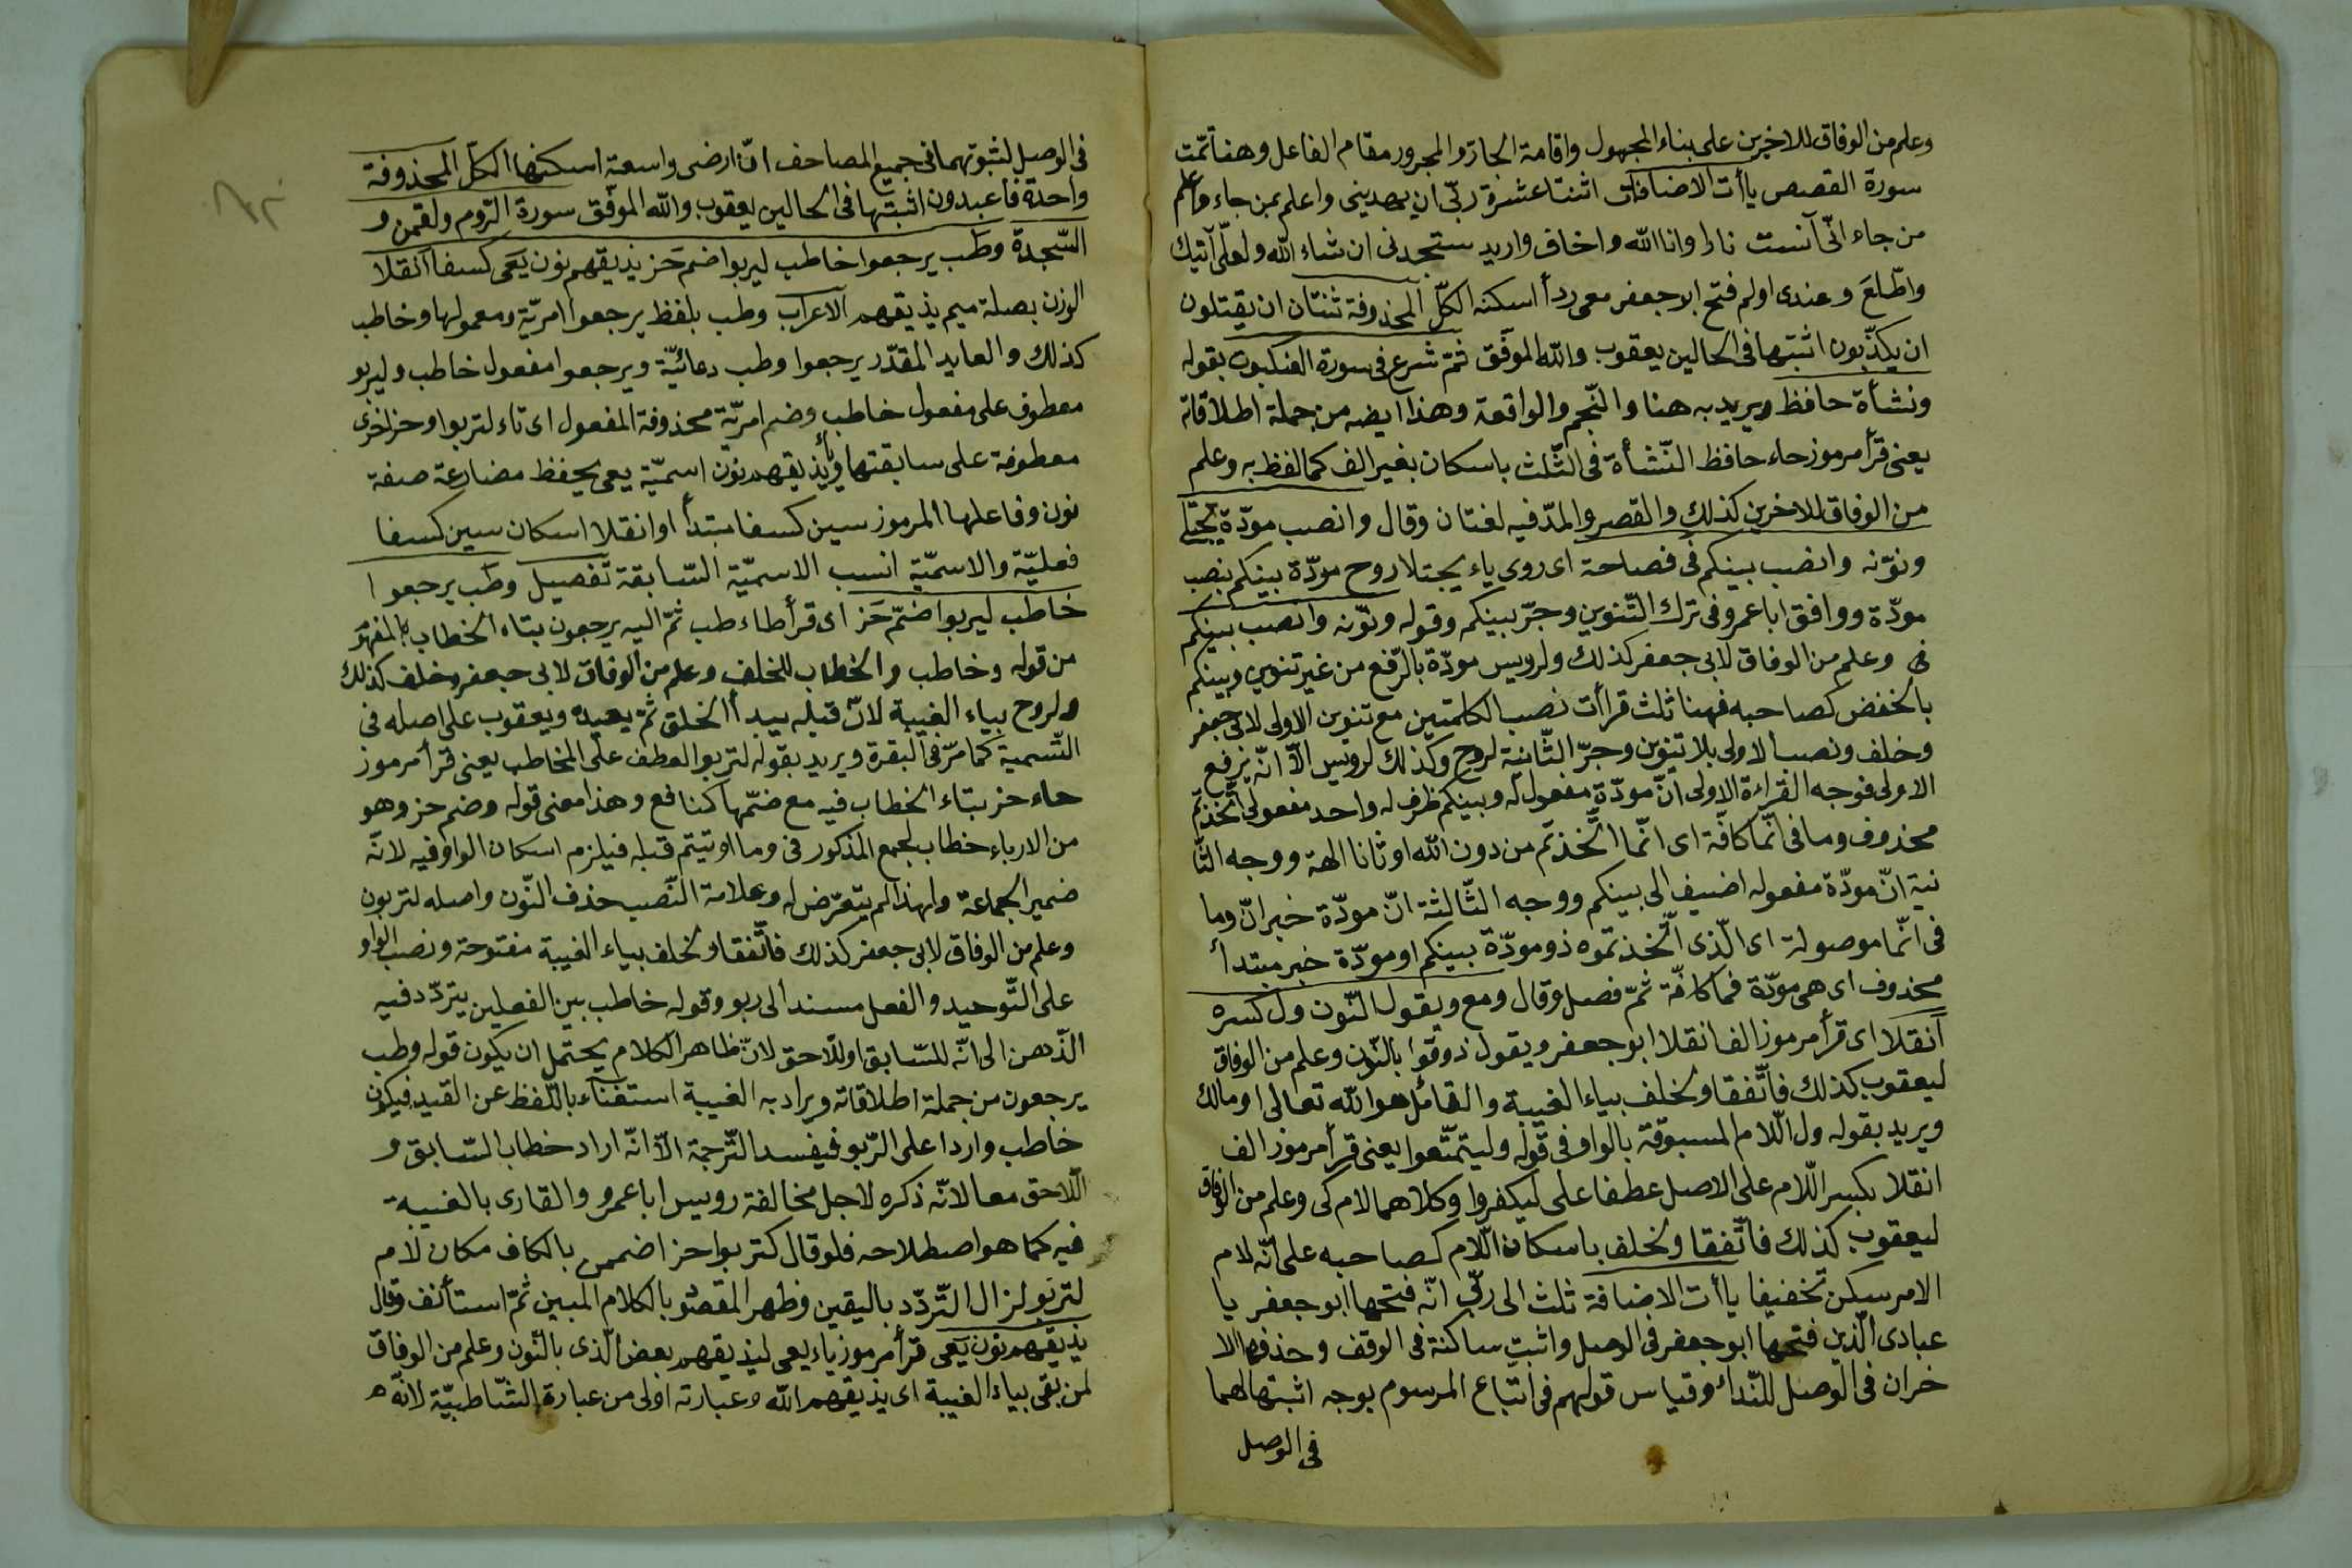 وعلم من الوفاق للاخيرين على بناء المجهول واقامة الجار والمجرور مقام الفاعل وهنا تمّت
سورة القصص ياأت الاضافات اثنتا عشرة ربّى ان يهدينى واعلم بمن جاء واعلم
من جاء انّى آنست نارا وانا الله واخاف واريد ستجدنى ان شاء الله ولعلّى آتيك
واطّلعَ وعندى اولم فتح ابو جعفر معى ردأ اسكنه الكلّ المحذوفة ثنتان ان يقتلون
ان يكذّبون اثبتها فى الحالين يعقوب والله الموفّق ثمّ شرع فى سورة العنكبوت بقوله
ونشأة حافظ ويريد به هنا والنّجم والواقعة وهذا ايضه من جملة اطلاقاته
يعنى قرأ مرموز حاء حافظ النّشأة فى الثّلث باسكان بغير الف كما لفظ به وعلم
من الوفاق للاخرين كذلك والقصر والمدّ فيه لغتان وقال وانصب مودّة يجتلى
ونوّنه وانصب بينكم فى فصاحة اى روى ياء يجتلا روح مودّة بينكم بنصب
مودّة ووافق ابا عمرو فى ترك التّنوين وجرّ بينكم وقوله ونوّنه وانصب بينكم
فى وعلم من الوفاق لابى جعفر كذلك ولرويس مودّة بالرّفع من غير تنوين وبينكم
بالخفض كصاحبه فهنا ثلث قراأت نصب الكلمتين مع تنوين الاولى لابى جعفر
وخلف ونصب الاولى بلا تنوين وجرّ الثّانية لروح وكذلك لرويس الّا انّه يرفع
الاولى فوجه القراءة الاولى انّ مودّة مفعول له وبينكم ظرف له واحد مفعولى اتّخذتم
محذوف وما فى انّما كافّة اى انّما اتّخذتم من دون الله اوثانا الهة ووجه الثّا
نية انّ مودّة مفعوله اضيف الى بينكم ووجه الثّالثة انّ مودّة خبر انّ وما
فى انّما موصولة اى الّذى اتّخذتموه ذو مودّة بينكم او مودّة خبر مبتدأ
محذوف اى هى مودّة فما كافّة ثمّ فصل وقال ومع ويقول النّون ول كسره
آنقلا اى قرأ مرموز الف انقلا ابو جعفر ويقول ذوقوا بالنّون وعلم من الوفاق
ليعقوب كذلك فاتّفقا ولخلف بياء الغيبة والقائل هو الله تعالى او مالك
ويريد بقوله ول اللّام المسبوقة بالواو فى قوله وليتمتّعوا يعنى قرأ مرموز الف
انقلا بكسر اللّام على الاصل عطفا على ليكفروا وكلاهما لام كى وعلم من الوفاق
ليعقوب كذلك فاتّفقا ولخلف باسكان اللّام كصاحبه على انّه لام
الامر سكن تخفيفا ياأت الاضافة ثلث الى ربّى انّه فتحها ابو جعفر يا
عبادى الّذين فتحها ابو جعفر فى الوصل واثبت ساكنة فى الوقف وحذفها الا
خران فى الوصل للنّداء وقياس قولهم فى اتّباع المرسوم بوجه اثبتها لهما
فى الوصل
فى الوصل لثبوتهما فى جميع المصاحف انّ ارضى واسعة اسكنها الكلّ المحذوفة
واحدة فاعبدون اثبتها فى الحالين يعقوب والله الموفّق سورة الرّوم ولقمن و
السّجدة وطب يرجعوا خاطب ليربوا ضم حَز يذيقهم نون يَعى كسفا آنقلا
الوزن بصلة ميم يذيقهم الاعراب وطب بلفظ يرجعوا امريّة ومعمولها وخاطب
كذلك والعايد المقدّر يرجعوا وطب دعائيّة ويرجعوا مفعول خاطب وليربو
معطوف على مفعول خاطب وضم امريّة محذوفة المفعول اى تاء لتربوا وحز اخرى
معطوفة على سابقتها ويذيقهم نون اسميّة يعى يحفظ مضارعة صفة
نون وفاعلها المرموز سين كسفا مبتدأ او انقلا اسكان سين كسفا
فعليّة والاسميّة انسب الاسميّة السّابقة تفصيل وطب يرجعوا
خاطب ليربوا ضمّ حَز اى قرأ طاء طب ثمّ اليه يرجعون بتاء الخطاب المفهو
من قوله وخاطب والخطاب للخلف وعلم من الوفاق لابى جعفر وخلف كذلك
ولروح بياء الغيبة لانّ قبله يبدأ الخلق ثمّ يعيده ويعقوب على اصله فى
التّسمية كما مرّ فى البقرة ويريد بقوله لتربوا العطف على المخاطب يعنى قرأ مرموز
حاء حز بتاء الخطاب فيه مع ضمّها كنافع وهذا معنى قوله وضم حز وهو
من الارباء خطاب لجمع المذكور فى وما اوتيتم قبله فيلزم اسكان الواو فيه لانّه
ضمير الجماعة ولهذا لم يتعرّض له وعلامة النّصب حذف النّون واصله لتربون
وعلم من الوفاق لابى جعفر كذلك فاتّفقا ولخلف بياء الغيبة مفتوحة ونصب الواو
على التّوحيد والفعل مسند الى ربو وقوله خاطب بين الفعلين يتردّد فيه
الذّهن الى انّه للسّابق او للّاحق لانّ ظاهر الكلام يحتمل ان يكون قوله وطب
يرجعون من جملة اطلاقاته ويراد به الغيبة استغناء باللّفظ عن القيد فيكون
خاطب واردا على الرّبو فيفسد التّرجمة الّا انّه اراد خطاب السّابق و
اللّاحق معا لانّه ذكره لاجل مخالفة رويس ابا عمرو والقارى بالغيبة
فيه كما هو اصطلاحه فلو قال كتربوا حز اضممن بالكاف مكان لام
لتربو لزال التّردّد باليقين وظهر المقصو بالكلام المبين ثمّ استأنف وقال
يذيقهم نون يَعى قرأ مرموز ياء يعى ليذيقهم بعض الّذى بالنّون وعلم من الوفاق
لمن بقى بياء الغيبة اى يذيقهم الله وعبارته اولى من عبارة الشّاطبيّة لانّه